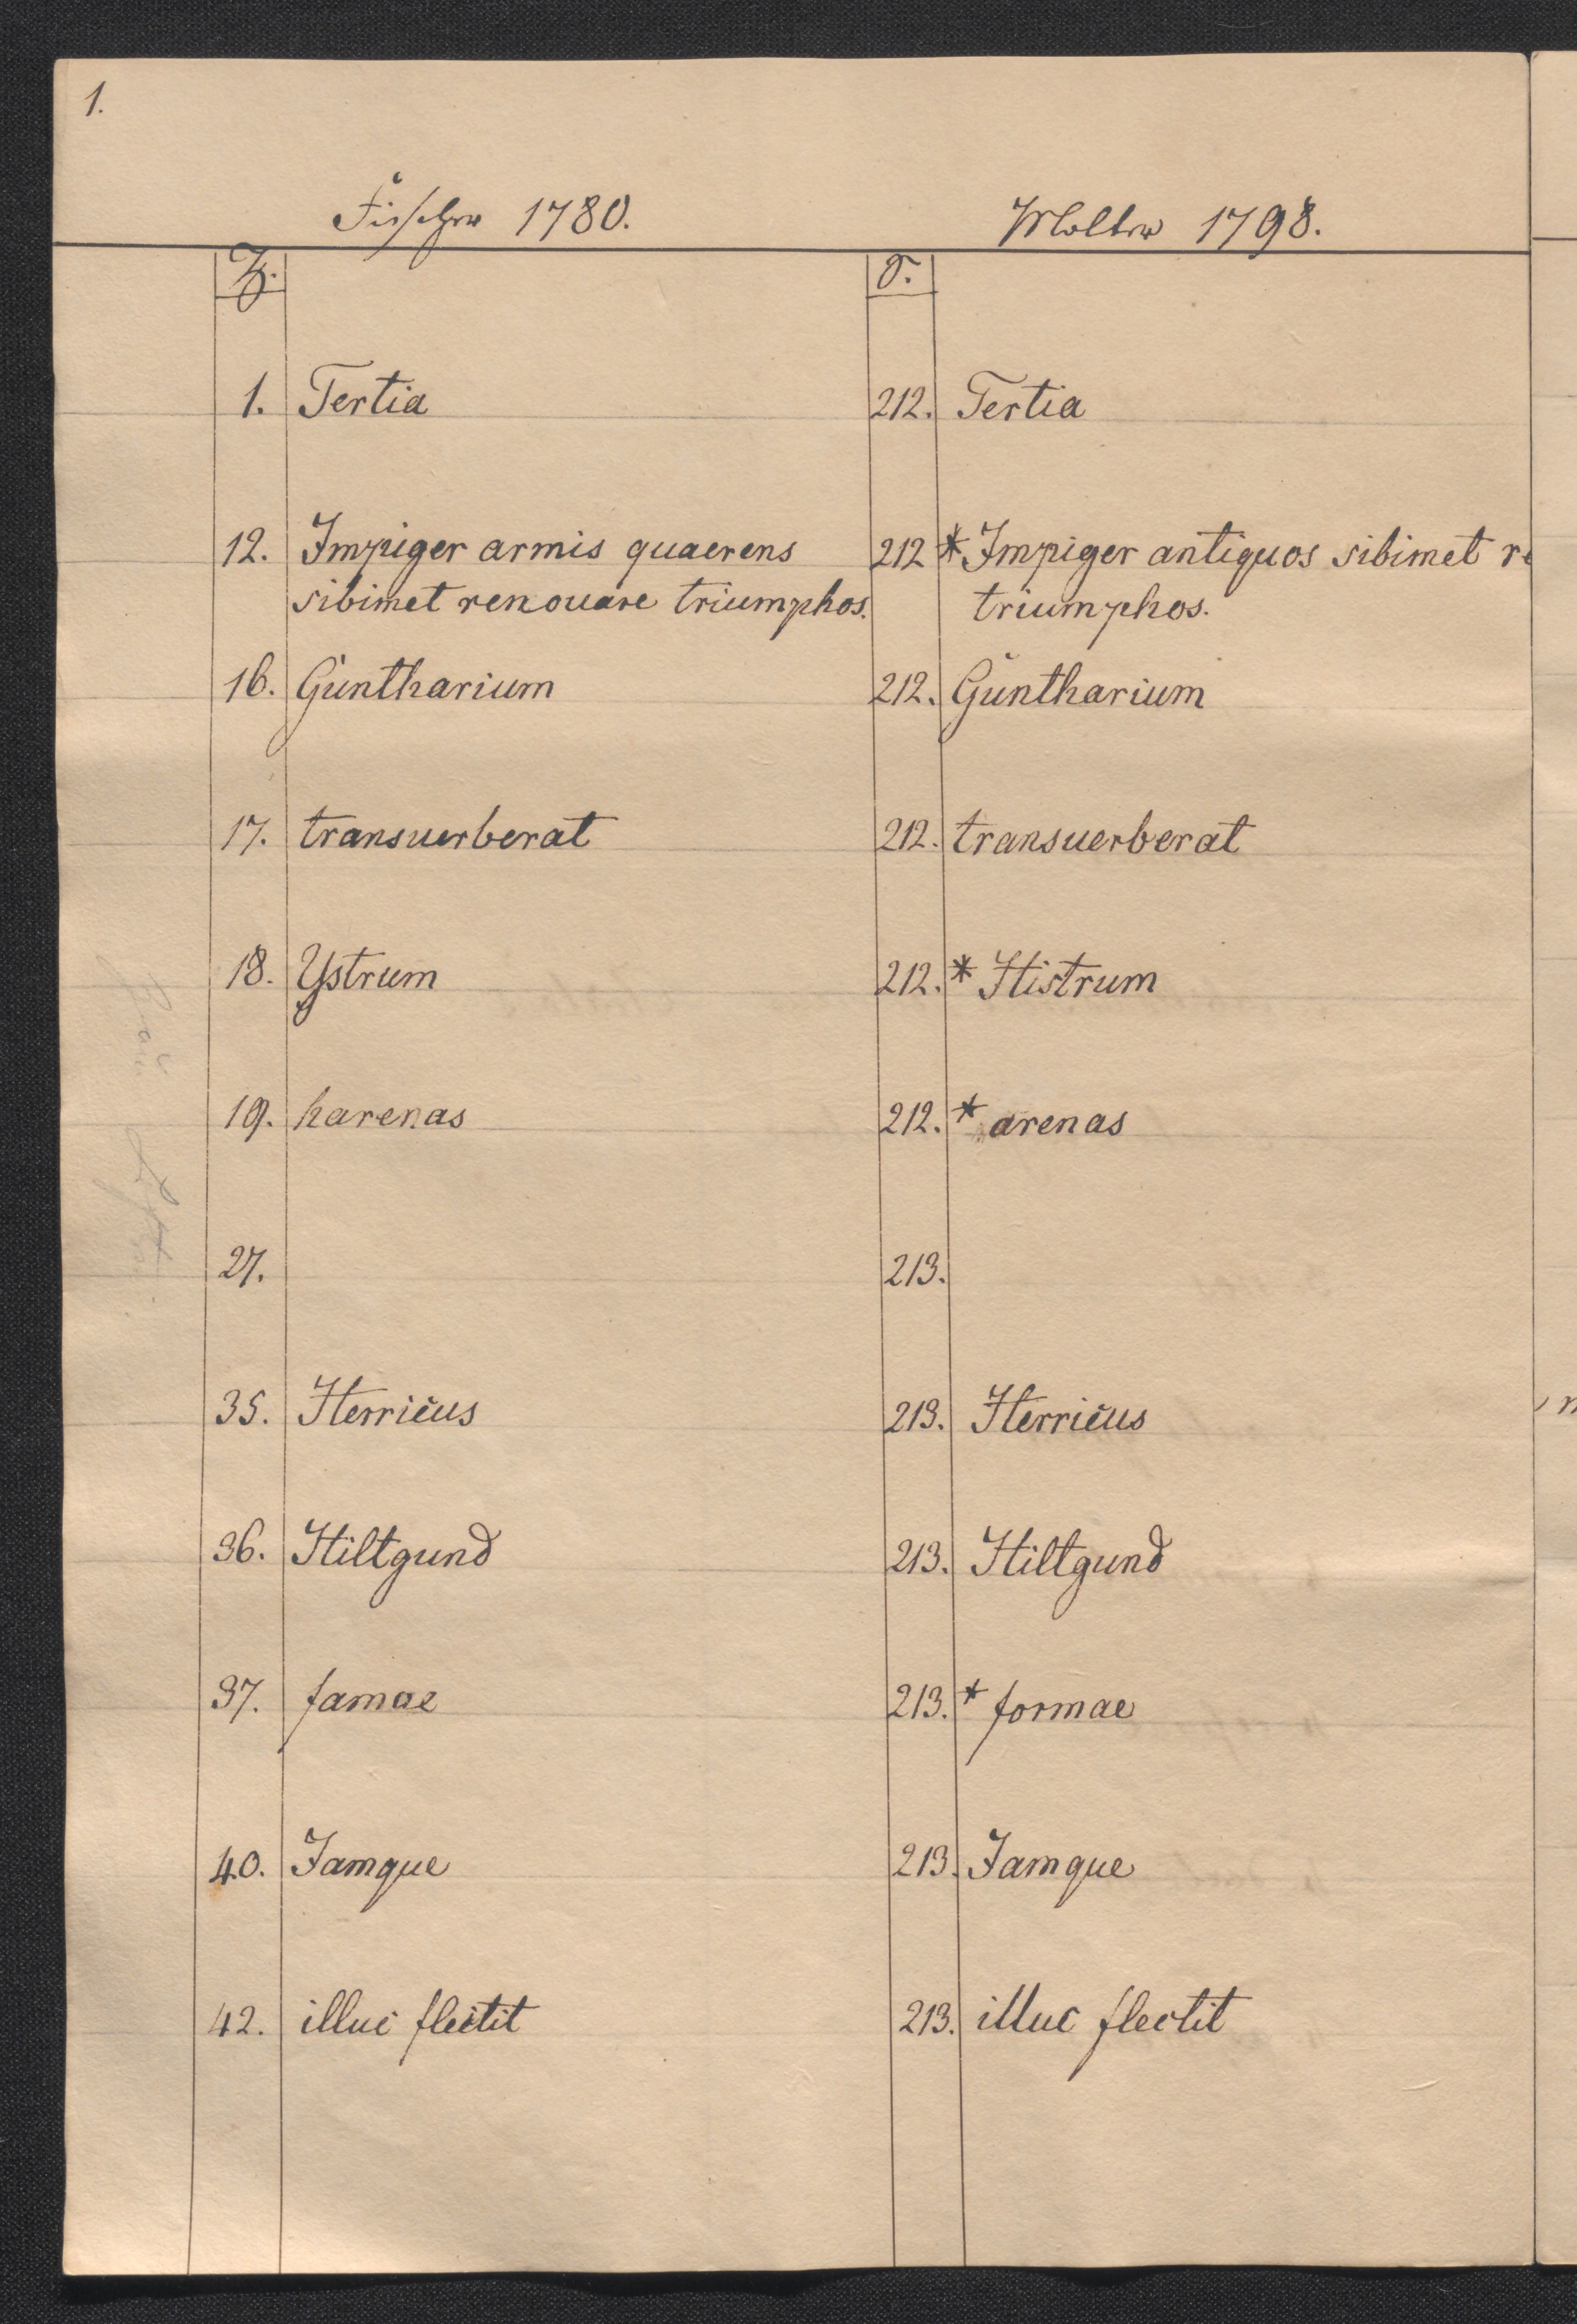 1.
Fischer 1780. Molter 1798.
Z. S.
1. Tertia 212. Tertia
12. Impiger armis quaerens 212 * Impiger antiquos sibimet re
sibimet renouare triumphos. triumphos.
16. Guntharium 212. Guntharium
17. transuerberat 212. transuerberat
18. Ystrum 212. * Histrum
19. harenas 212. * arenas
27. 213.
35. Herricus 213. Herricus
36. Hiltgund 213. Hiltgund
37. famae 213. * formae
40. Jamque 213. Jamque
42. illuc flectit 213. illuc flectit